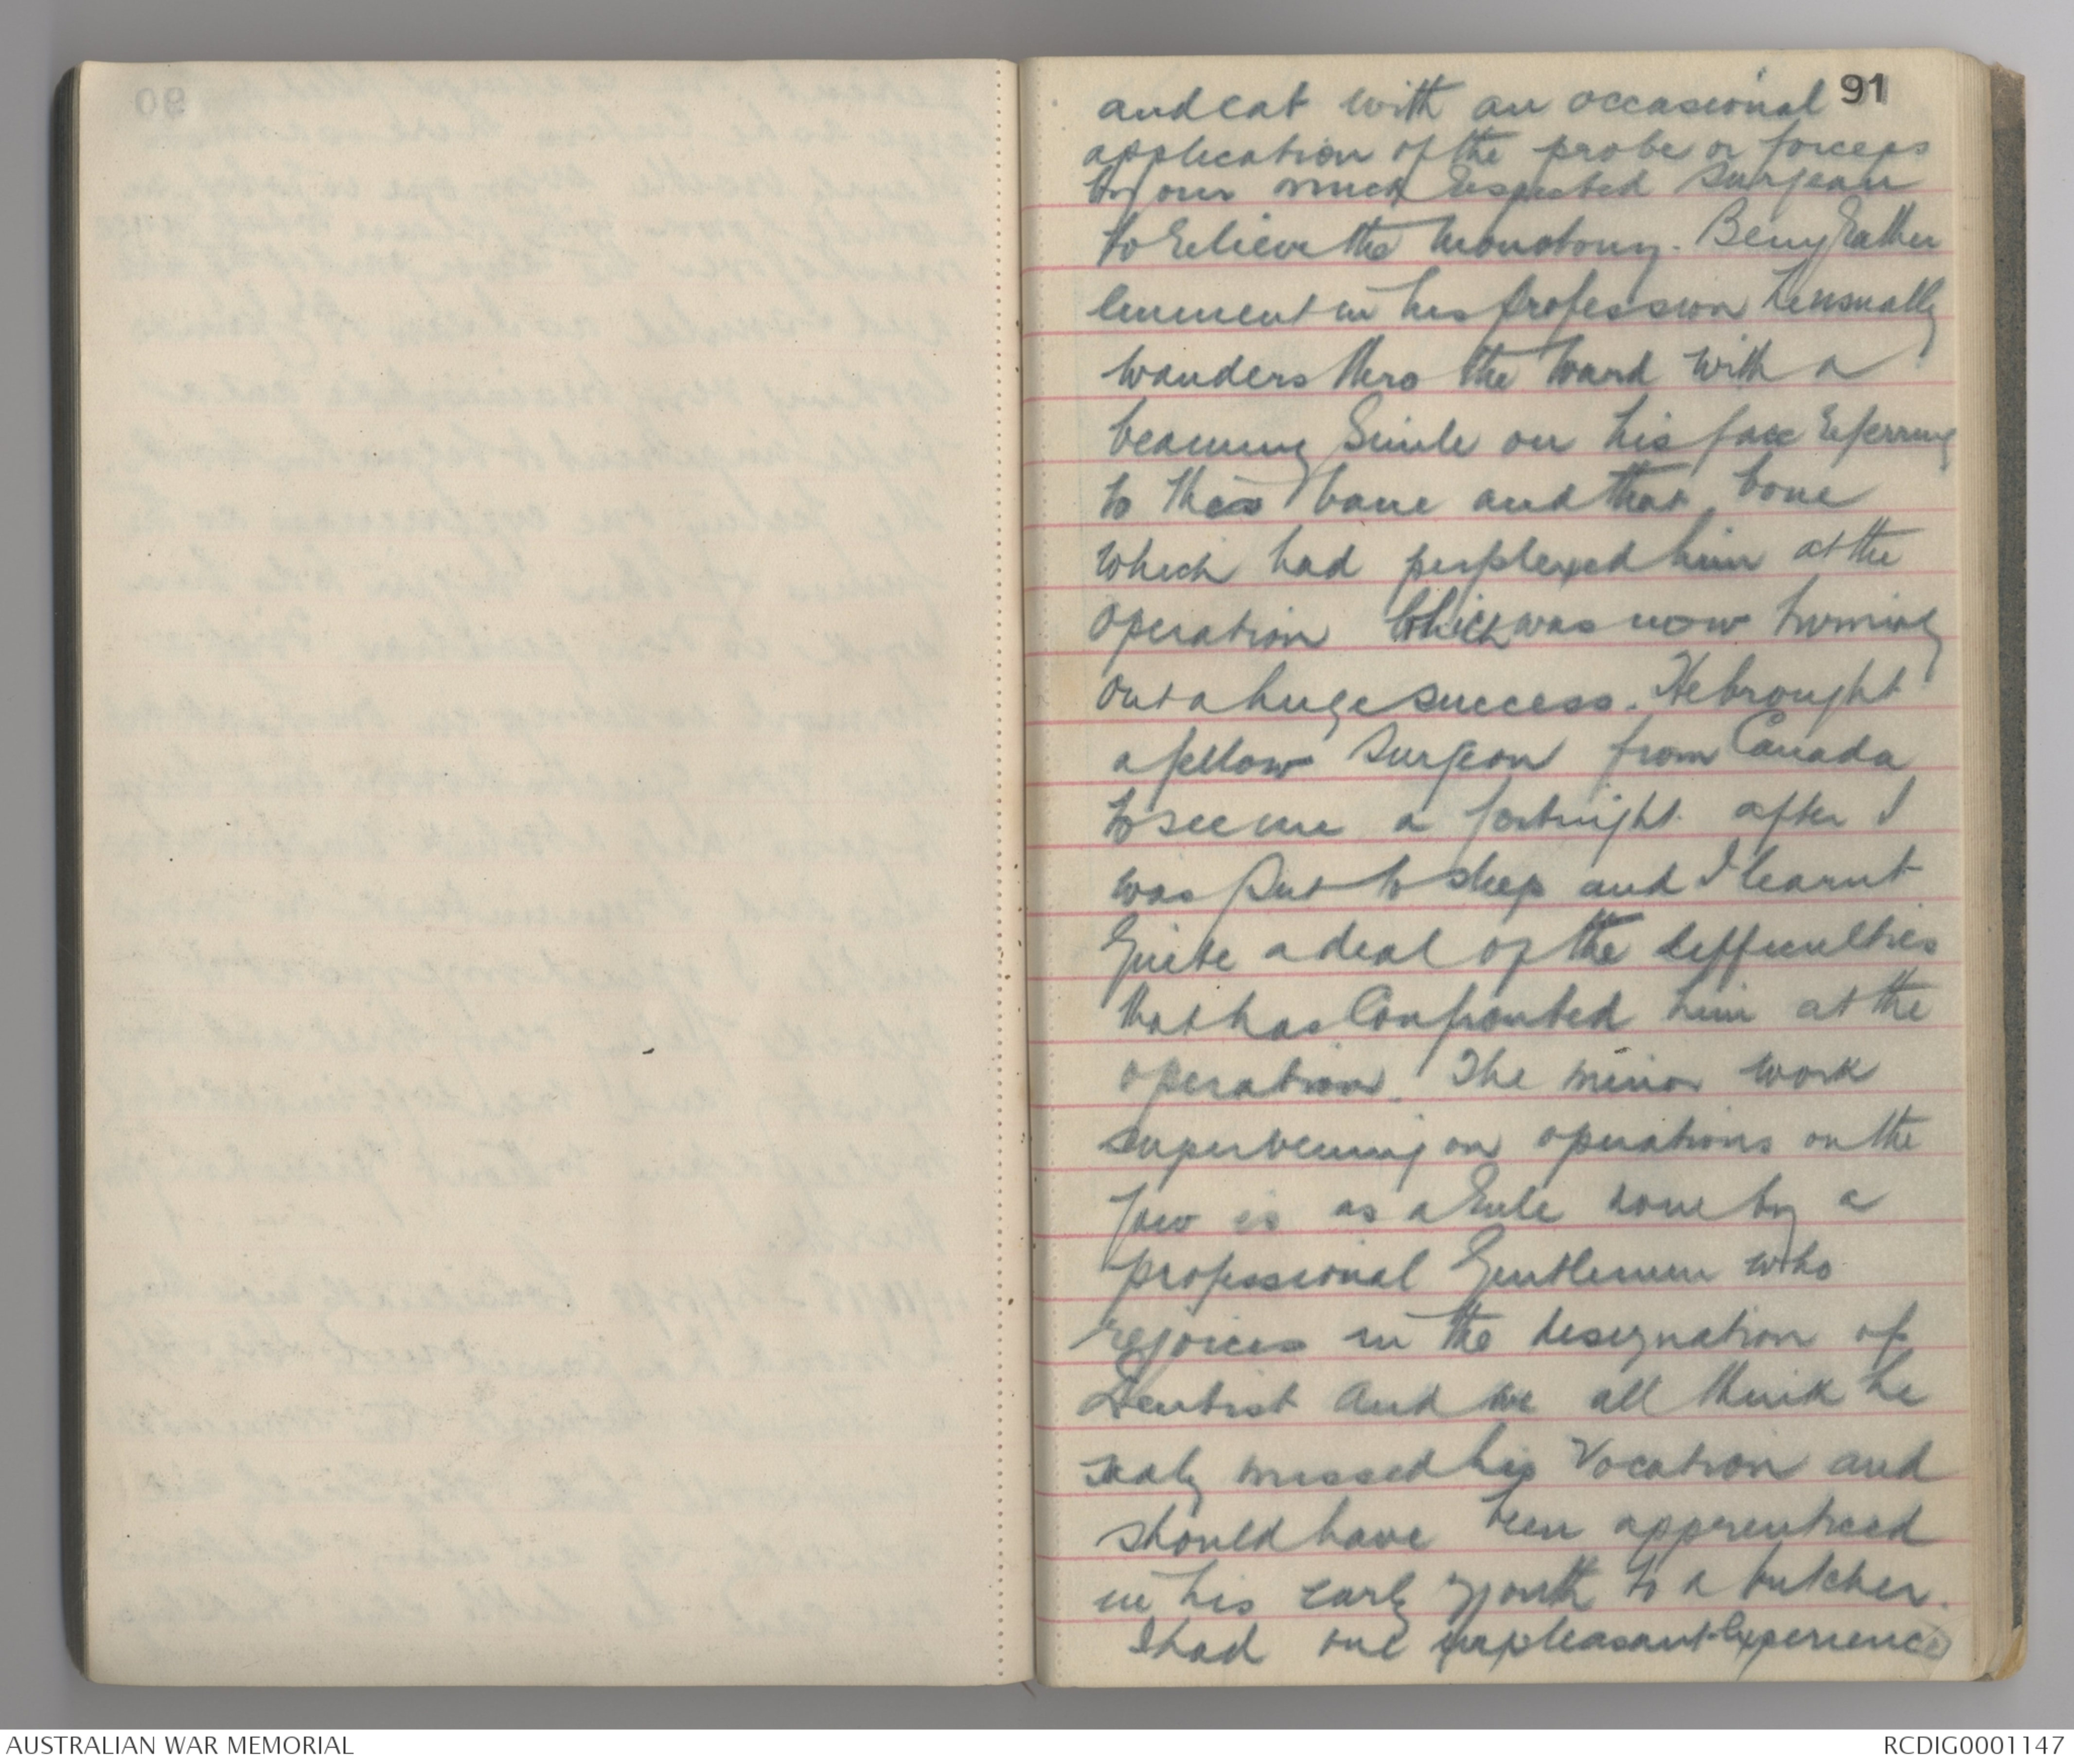 91
and eat with an occasional
application of the probe or forceps
by our much respected surgeon
to relieve the monotony. Being rather
eminent in his profession he usually
wanders thro the ward with a
beaming smile on his face referring
to this bone and that bone
which had perplexed him at the
operation which was now turning
out a huge success. He brought
a fellow surgeon from Canada
to see me a fortnight after I
was put to sleep and I learnt
quite a deal of the difficulties
that has confronted him at the
operation. The minor work
supervening on operations on the
jaw is as a rule done by a
professional Gentlemen who
rejoices in the designation of
Dentist and we all think he
sadly missed his vocation and
should have been apprenticed
in his early youth to a butcher.
I had one unpleasant experience
AUSTRALIAN WAR MEMORIAL
RCDIG0001147